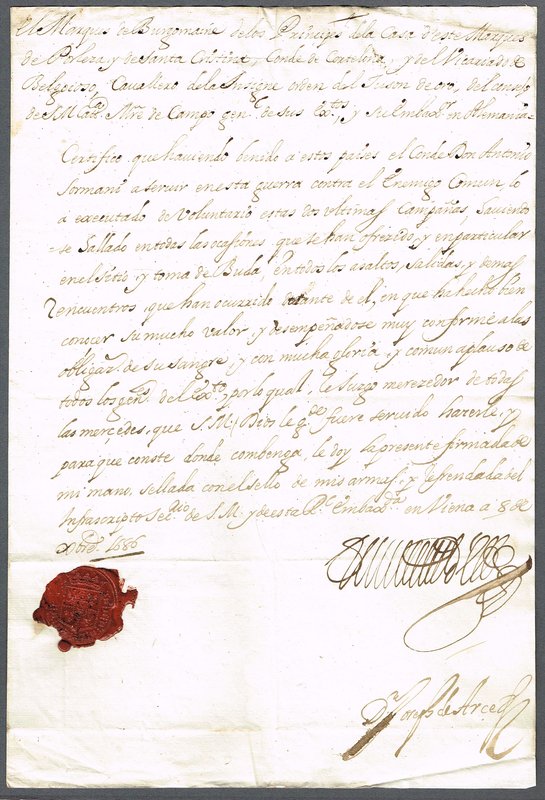 El Marques de Burgomaine de los Principes dela Casa d'este Marques
de Porlera y de Santa Cristina, Conde de Corteliria, y del Vicariado de
Belgioioso, Cavallero dela Insigne orden del Tuson de oro, del consejo
de S.M. Catt.ca Mre de Campo gen.l de sus Ex.tos, y su Embax.or en Alemania
Certifico que haviendo benido a estos paises el Conde Don Antonio
Sormani a servir en esta guerra contra el Enemigo Comun, lo
a executado de Voluntario estas dos ultimas Campañas, haviendo
se hallado en todas las ocasiones, que se han ofrezido, y en particular
en el sitio, y toma de Buda, en todos los asaltos, salidas, y demas
rencuentros, que han ocurrido delante de el, en que ha hecho bien
conocer su mucho valor, y desempeñadose muy conforme a las
obligaz.s de su sangre, y con mucha gloria, y comun aplauso de
todos los gen.s del Ex.to, por lo qual, le Juzgo merezedor de todas
las mercedes, que S.M. (Dios le g.de) fuere servido hazerle, y
para que conste donde combenga, le doy la presente firmada de
mi mano, sellada con el sello de mis armas, y Refrendada del
Infrascripto Sec.rio de S.M. y de esta R.l Embax.da en Viena a 8 de
Xbre. 1686
Dn Joseph de Arce